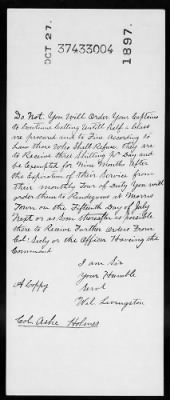 OCT 27.
37433004
1897.
Do Not. You Will Order Your Captains
to Continue Calling Untill Half a Class
are procured and to Fine According to
Law those Who Shall Refuse they are
to Receive three Shilling Pr Day and
be Exempted for Nine Months After
the Expiration of their Service From
their monthly Tour of Duty You will
order them to Rendezvous at Morris
Town on the Fifteenth Day of July
Next or as Son thereafter as possible
there to Receive Further Orders From
Col: Seely or the Officer Haveing the
Command
I am Sir
Your Humble
Servt
A Coppy
Wil Livingston
Col. Asher Holmes